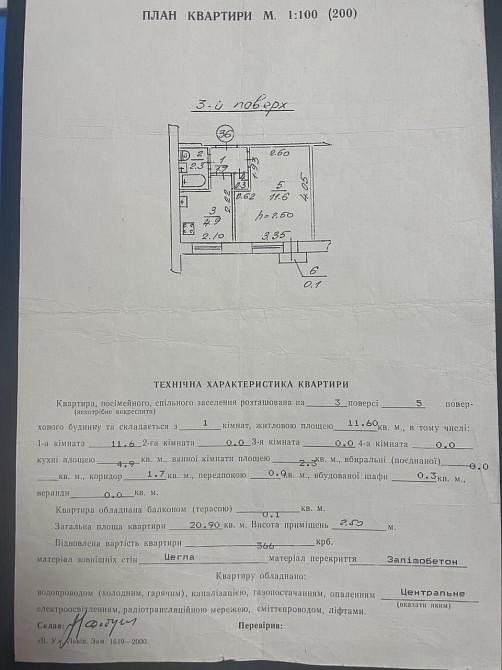 ПЛАН КВАРТИРИ М. 1:100 (200)
3-й поверх
36
2
2.3
1
1.7
1.93
2.60
4
0.3
0.62
5
11.6
4.05
3
4.9
2.22
h=2.50
2.10
3.35
6
0.1
ТЕХНІЧНА ХАРАКТЕРИСТИКА КВАРТИРИ
Квартира, посімейного, спільного заселення розташована на 3 поверсі 5 повер-
(непотрібне викреслити)
хового будинку та складається з 1 кімнат, житловою площею 11.60 кв. м., в тому числі:
1-а кімната 11.6 2-га кімната 0.0 3-я кімната 0.0 4-а кімната 0.0
кухні площею 4.9 кв. м., ванної кімнати площею 2.3 кв. м., вбиральні (поєднаної) 0.0
кв. м., коридор 1.7 кв. м., передпокою 0.0 кв. м., вбудованої шафи 0.3 кв. м.,
веранди 0.0 кв. м.
Квартира обладнана балконом (терасою) 0.1 кв. м.
Загальна площа квартири 20.90 кв. м. Висота приміщень 2.50 м.
Відновлена вартість квартири 366 крб.
матеріал зовнішніх стін Цегла матеріал перекриття Залізобетон
Квартиру обладнано:
водопроводом (холодним, гарячим), каналізацією, газопостачанням, опаленням Центральне
(вказати яким)
електроосвітленням, радіотрансляційною мережею, сміттепроводом, ліфтами.
Склав: Перевірив:
Зам. 1619—2000.